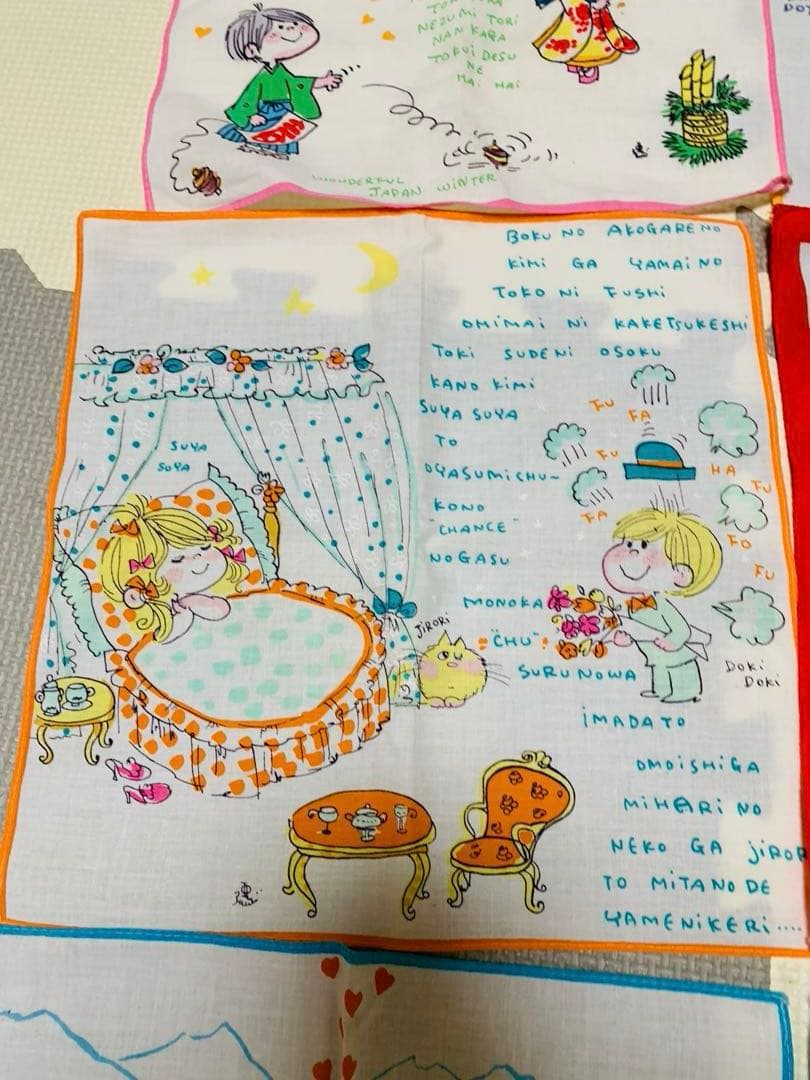 NEZUMI TORI
NAN KARA
TOKUI DESU
NE
HAI HAI
WONDERFUL
JAPAN WINTER
BOKU NO AKOGARE NO
KIMI GA YAMAI NO
TOKO NI FUSHI
OMIMAI NI KAKETSUKESHI
TOKI SUDENI OSOKU
KANO KIMI
SUYA SUYA
TO
OYASUMICHU~
KONO
"CHANCE"
NOGASU
MONOKA
"CHU"
SURUNOWA
IMADATO
OMOISHIGA
MIHARI NO
NEKO GA JIRORI
TO MITANODE
YAMENIKERI....
SUYA
SUYA
JIRORI
FU
FA
FU
FA
HA
FU
FO
FU
DOKI
DOKI